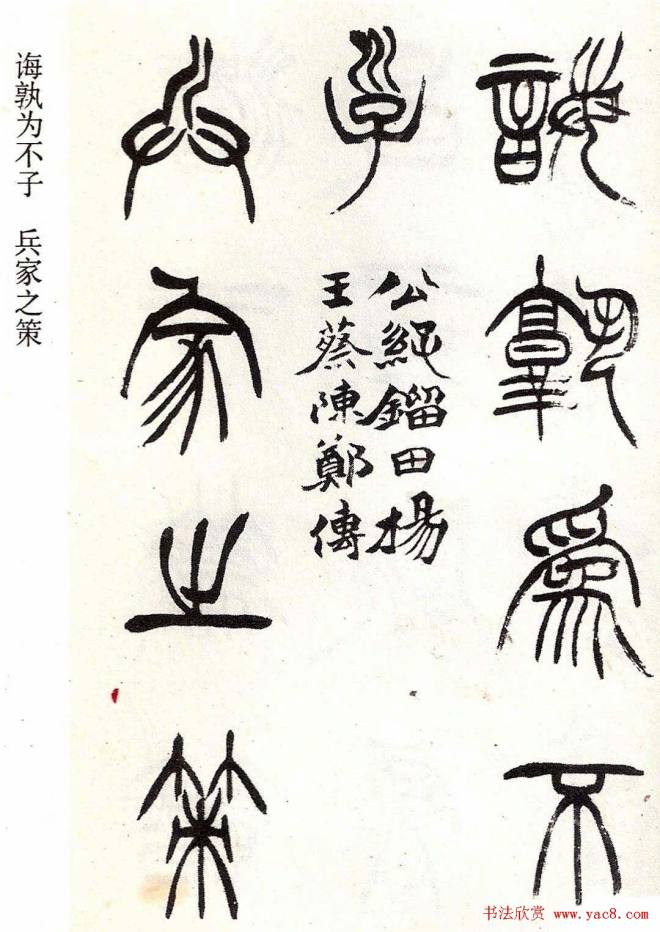 誨孰為不
子
公紀鎦田楊
王蔡陳鄭傳
兵家之策
诲孰为不子 兵家之策
书法欣赏 www.yac8.com